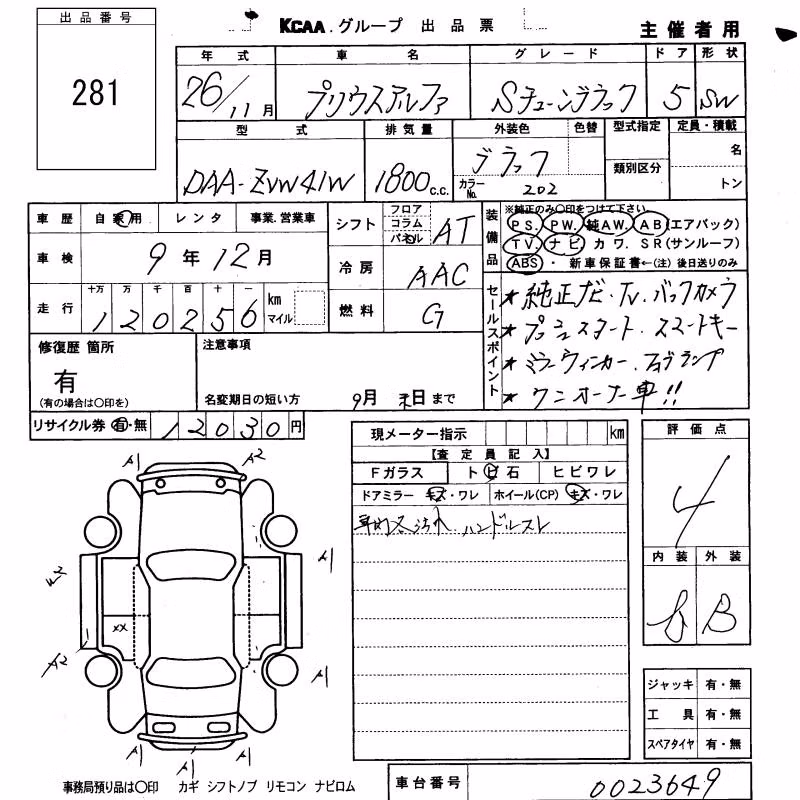 出品番号
281
KCAA.グループ 出品票
主催者用
年式 車名 グレード ドア 形状
26/11月 プリウスアルファ Sチューンブラック 5 SW
型式 排気量 外装色 色替 型式指定 定員・積載
DAA-ZVW41W 1800c.c. ブラック 名
カラーNo. 202 類別区分 トン
車歴 自家用 レンタ 事業.営業車
車検 9年12月
走行 十万 万 千 百 十 一
120256 km マイル
シフト フロア コラム パネル AT
冷房 AAC
燃料 G
装備品
※純正のみ○印をつけて下さい
PS. PW. 純AW. AB(エアバック)
TV. ナビ カワ. SR(サンルーフ)
ABS ・ 新車保証書←(注)後日送りのみ
セールスポイント
★純正ナビ・TV・バックカメラ
★プッシュスタート・スマートキー
★ミラーウィンカー・フォグランプ
★ワンオーナー車!!
修復歴 箇所
有
(有の場合は○印を)
注意事項
名変期日の短い方 9月末日まで
リサイクル券 有・無 12030円
現メーター指示 km
【査定員記入】
Fガラス トビ石 ヒビワレ
ドアミラー キズ・ワレ ホイール(CP) キズ・ワレ
ハンドルスレ
評価点
4
内装 外装
B
ジャッキ 有・無
工具 有・無
スペアタイヤ 有・無
A1 A2
A1
A2
XX
A1
A1 A1 A1
事務局預り品は○印 カギ シフトノブ リモコン ナビロム
車台番号 0023649